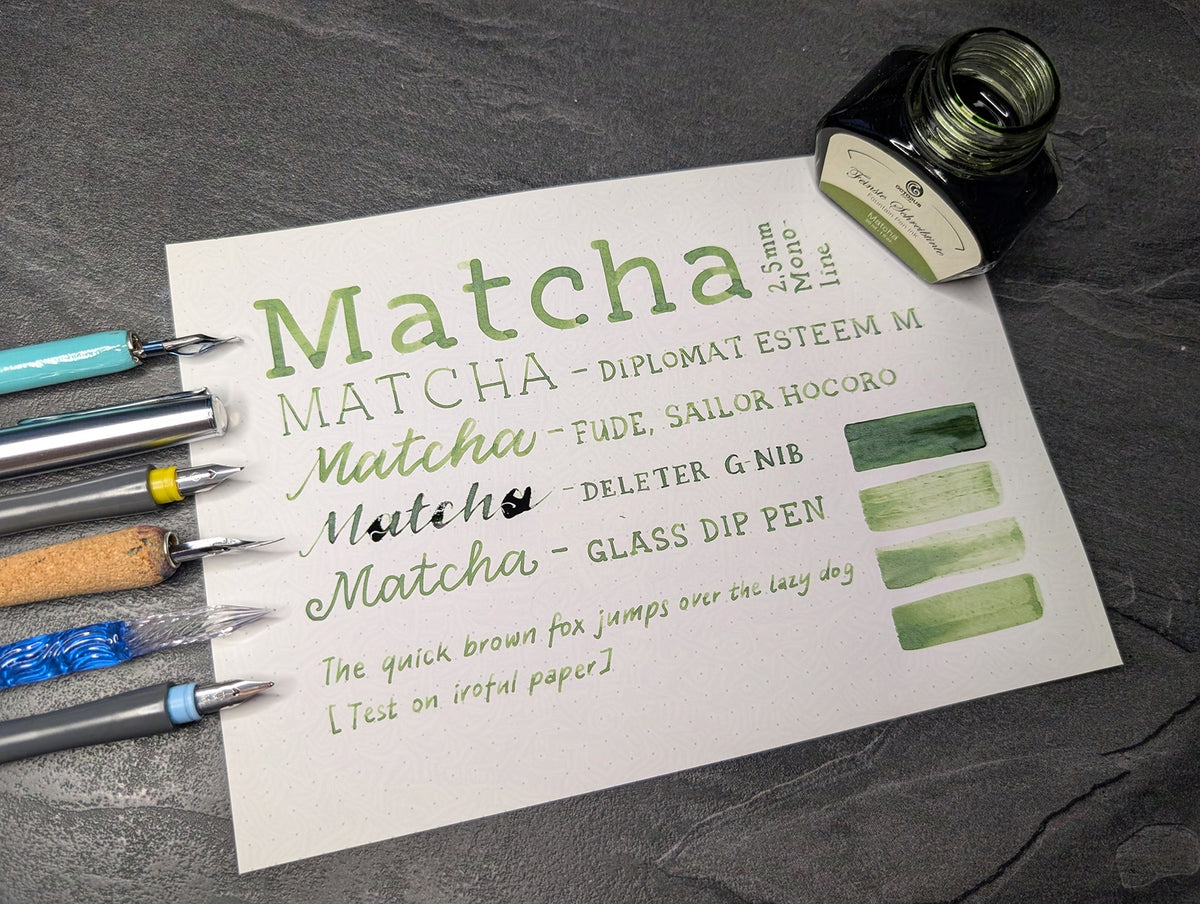 Matcha
2,5mm
Mono-
line
MATCHA - DIPLOMAT ESTEEM M
Matcha - FUDE, SAILOR HOCORO
Matcha - DELETER G-NIB
Matcha - GLASS DIP PEN
The quick brown fox jumps over the lazy dog
[Test on iroful paper]
OCTOPUS
Feinste Schreibtinte
Fountain Pen Ink
Matcha